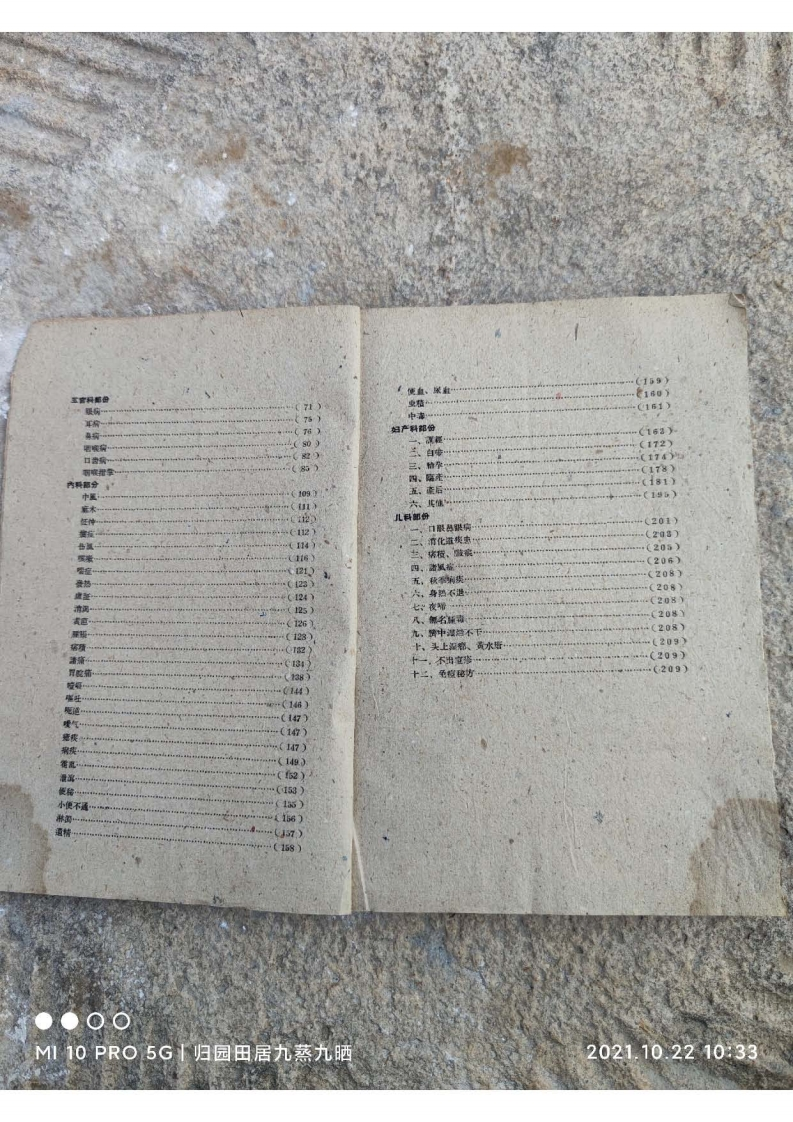 五官科部份
眼病……(71)
耳病……(75)
鼻病……(76)
咽喉病……(80)
口齒病……(82)
(85)
內科部份
中風……(109)
麻木……(111)
怔忡……(112)
癫症……(112)
伤風……(114)
咳嗽……(116)
喘症……(121)
發热……(123)
虛湿……(124)
消渴……(125)
黃疸……(126)
腫脹……(128)
痞積……(132)
諸痛……(134)
胃脘痛……(138)
噎嗝……(144)
嘔吐……(146)
呃逆……(147)
噯气……(147)
瘧疾……(147)
痢疾……(149)
霍乱……(152)
泄瀉……(153)
便秘……(155)
小便不通……(156)
淋濁……(157)
遺精……(158)
便血、尿血……(159)
虫積……(160)
中毒……(161)
妇产科部份
一、調經……(163)
二、白帶……(172)
三、胎孕……(174)
四、臨產……(178)
五、產后……(181)
六、其他……(195)
儿科部份
一、口眼鼻眼病……(201)
二、消化道疾患……(203)
三、痞積、(205)
四、諸風症……(206)
五、秋季痢疾……(208)
六、身热不退……(208)
七、夜啼……(208)
八、無名腫毒……(208)
九、臍中湿烂不干……(208)
十、头上湿瘡、黃水瘡……(209)
十一、不出痘疹……(209)
十二、免痘秘方……(209)
MI 10 PRO 5G | 归园田居九蒸九晒
2021.10.22 10:33